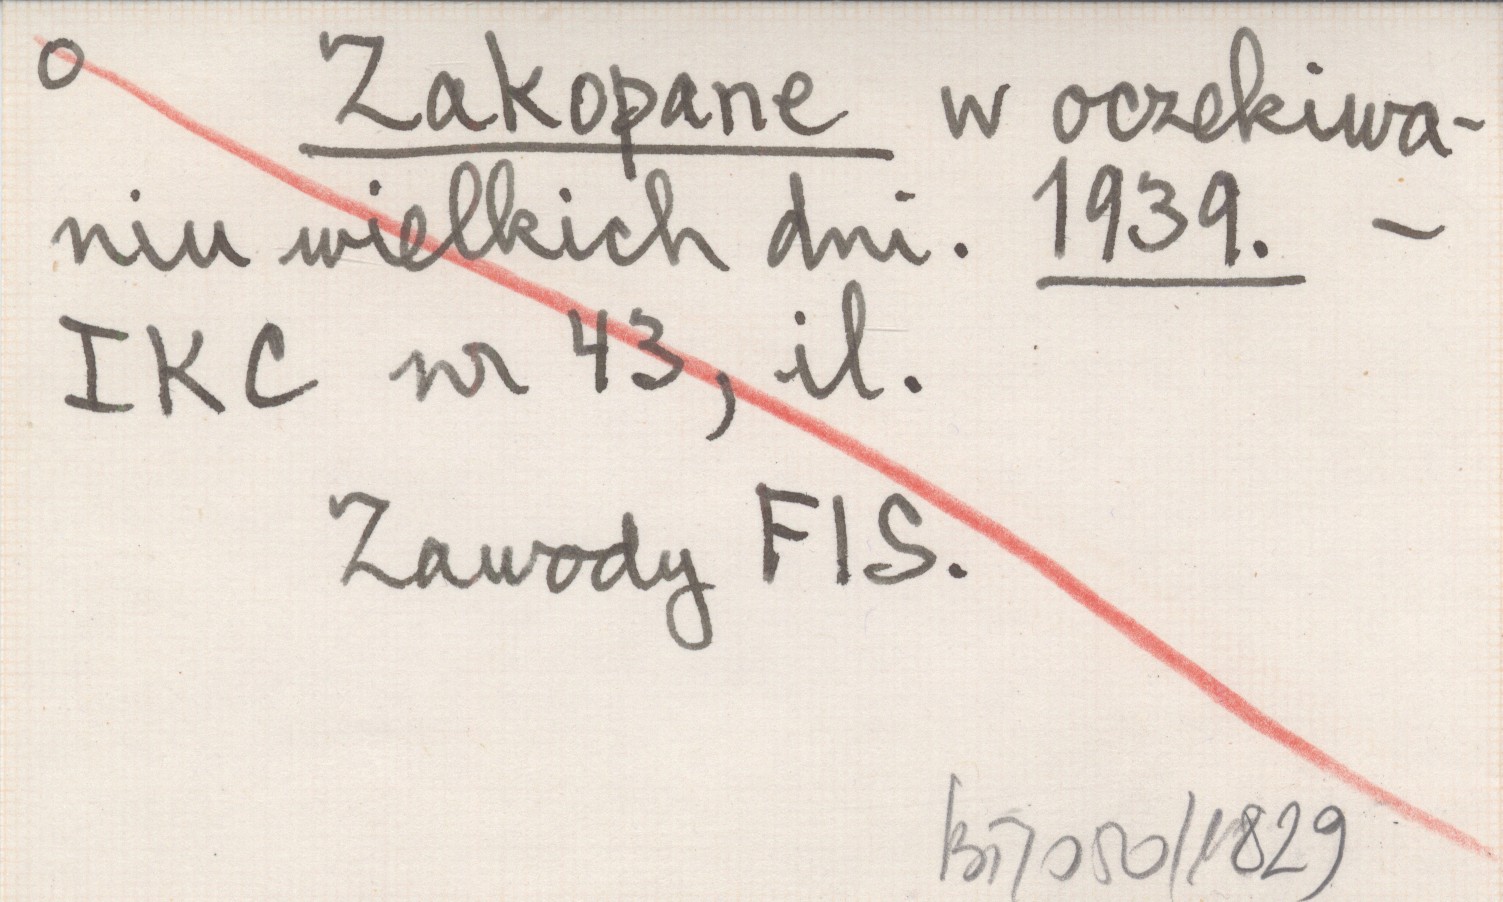 o Zakopane w oczekiwa-
niu wielkich dni. 1939. -
IKC nr 43, il.
Zawody FIS.
829